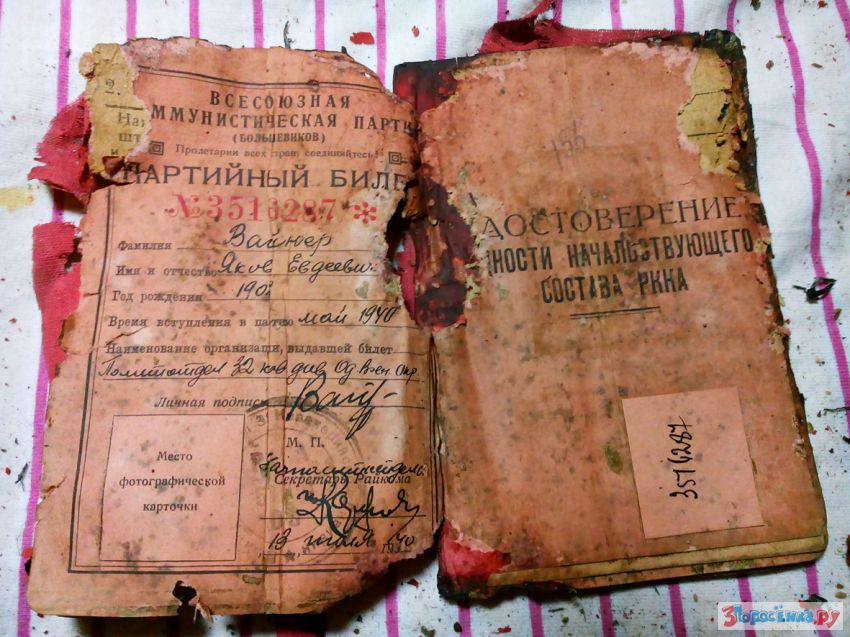 2.
ВСЕСОЮЗНАЯ
ММУНИСТИЧЕСКАЯ ПАРТИ
(БОЛЬШЕВИКОВ)
Пролетарии всех стран, соединяйтесь!
ПАРТИЙНЫЙ БИЛЕ
№3516287 *
Фамилия Вайнер
Имя и отчество Яков Евдеевич
Год рождения 190
Время вступления в партию май 1940
Наименование организации, выдавшей билет
Политотдел 32 кав див Од Воен Окр
Личная подпись
М. П.
Секретарь Райкома
Место
фотографической
карточки
13 июля 1940
155
ДОСТОВЕРЕНИЕ
НОСТИ НАЧАЛЬСТВУЮЩЕГО
СОСТАВА РККА
3516287
3Поросёнка.ру